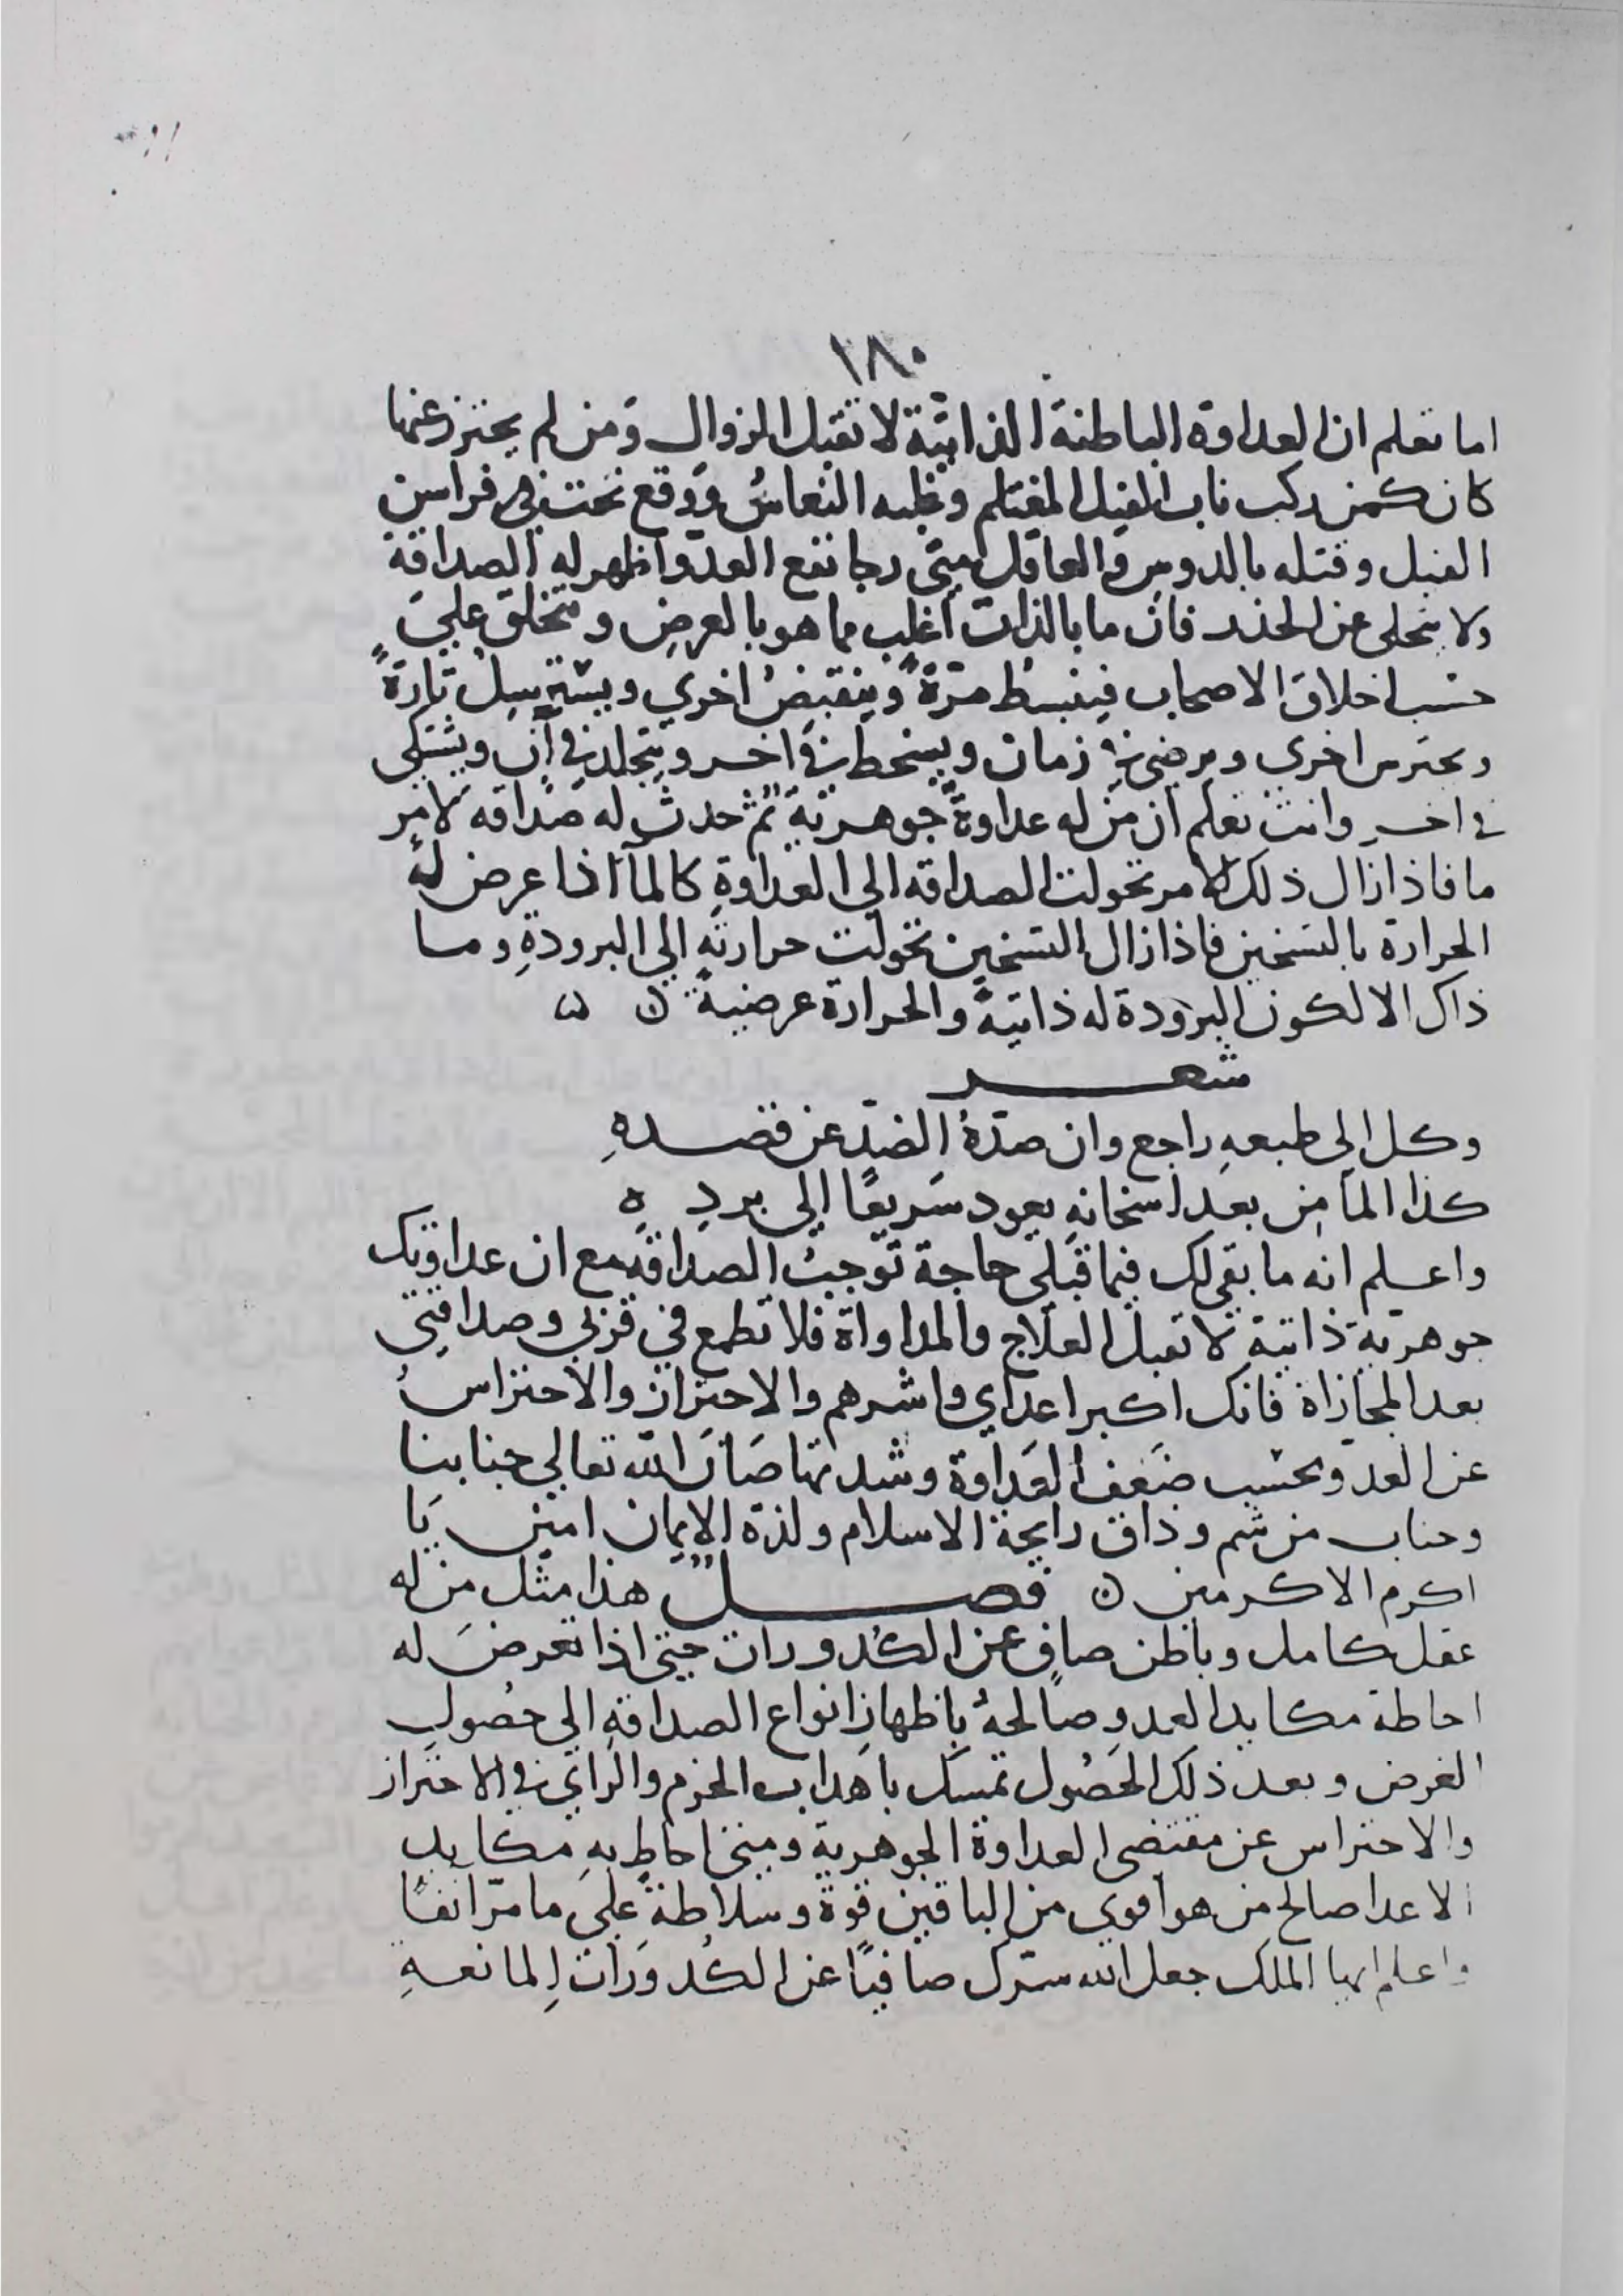 ١٨٠
اما تعلم ان العداوة الباطنة الذاتية لا تقبل الزوال ومن لم يحترز عنها
كان كمن ركب ناب الفيل المغتلم وغلبه النعاسُ ووقع تحت فراسن
الفيل وقتله بالدوس والعاقل متى رجا نفع العدو اظهر له الصداقة
ولا يتخلى عن الحذر فان ما بالذات اغلب مما هو بالعرض و يتخلق علي
حسب اخلاق الاصحاب فينبسط مرّةً وينقبضُ اخري ويسترسِلُ تارةً
ويحترس اخري ويرضى في زمان ويسخط في اخر ويتجلد في آن ويشتكي
في اخر وانت تعلم ان من له عداوة جوهرية ثم حدث له صداقه لامر
ما فاذا زال ذلك الامر تحولت الصداقه الي العداوةِ كالمآ اذا عرض له
الحرارة بالتسخين فاذا زال التسخين تحولت حرارته الي البرودةِ وما
ذاك الا لكون البرودة له ذاتيةً والحرارة عرضيةً ن ن
شعر
وكل الى طبعهِ راجع وان صدّهُ الضدّ عن قصدهِ
كذا المآ من بعد اسخانهِ يعود سَريعًا الي بردِهِ
واعلم انه ما بقى لك فيما قبلي حاجة توجبُ الصداقة مع ان عداوتك
جوهريّة ذاتية لا تقبل العلاج والمداواة فلا تطمع في قربي وصداقتي
بعد المجازاة فانك اكبر اعداي واشرهم والاحتراز والاحتراسُ
عن العدو بحسب ضَعف العَداوة وشدتها صَانَ الله تعالى جنابنا
وجناب من شم وذاق رايحة الاسلام ولذة الايمان امين يَا
اكرم الاكرمين ن فصل هذا مثل من له
عقل كامل وباطن صافٍ عن الكدورات حتى اذا تعرضَ له
احاطة مكايد العدو صَالحهُ باظهارِ انواع الصداقةِ الي حصُولِ
الغرض وبعد ذلك الحصُول تمسك باهداب الحزم والراي في الاحتراز
والاحتراس عن مقتضى العداوة الجوهرية ومتى احاطِ بهِ مكايد
الاعدا صالح من هو اقوي من الباقين قوةً وسلاطةً عليَ ما مرّ انفًا
واعلم ايها الملك جعل الله سرّك صافيًا عن الكُدورَات المانعهِ